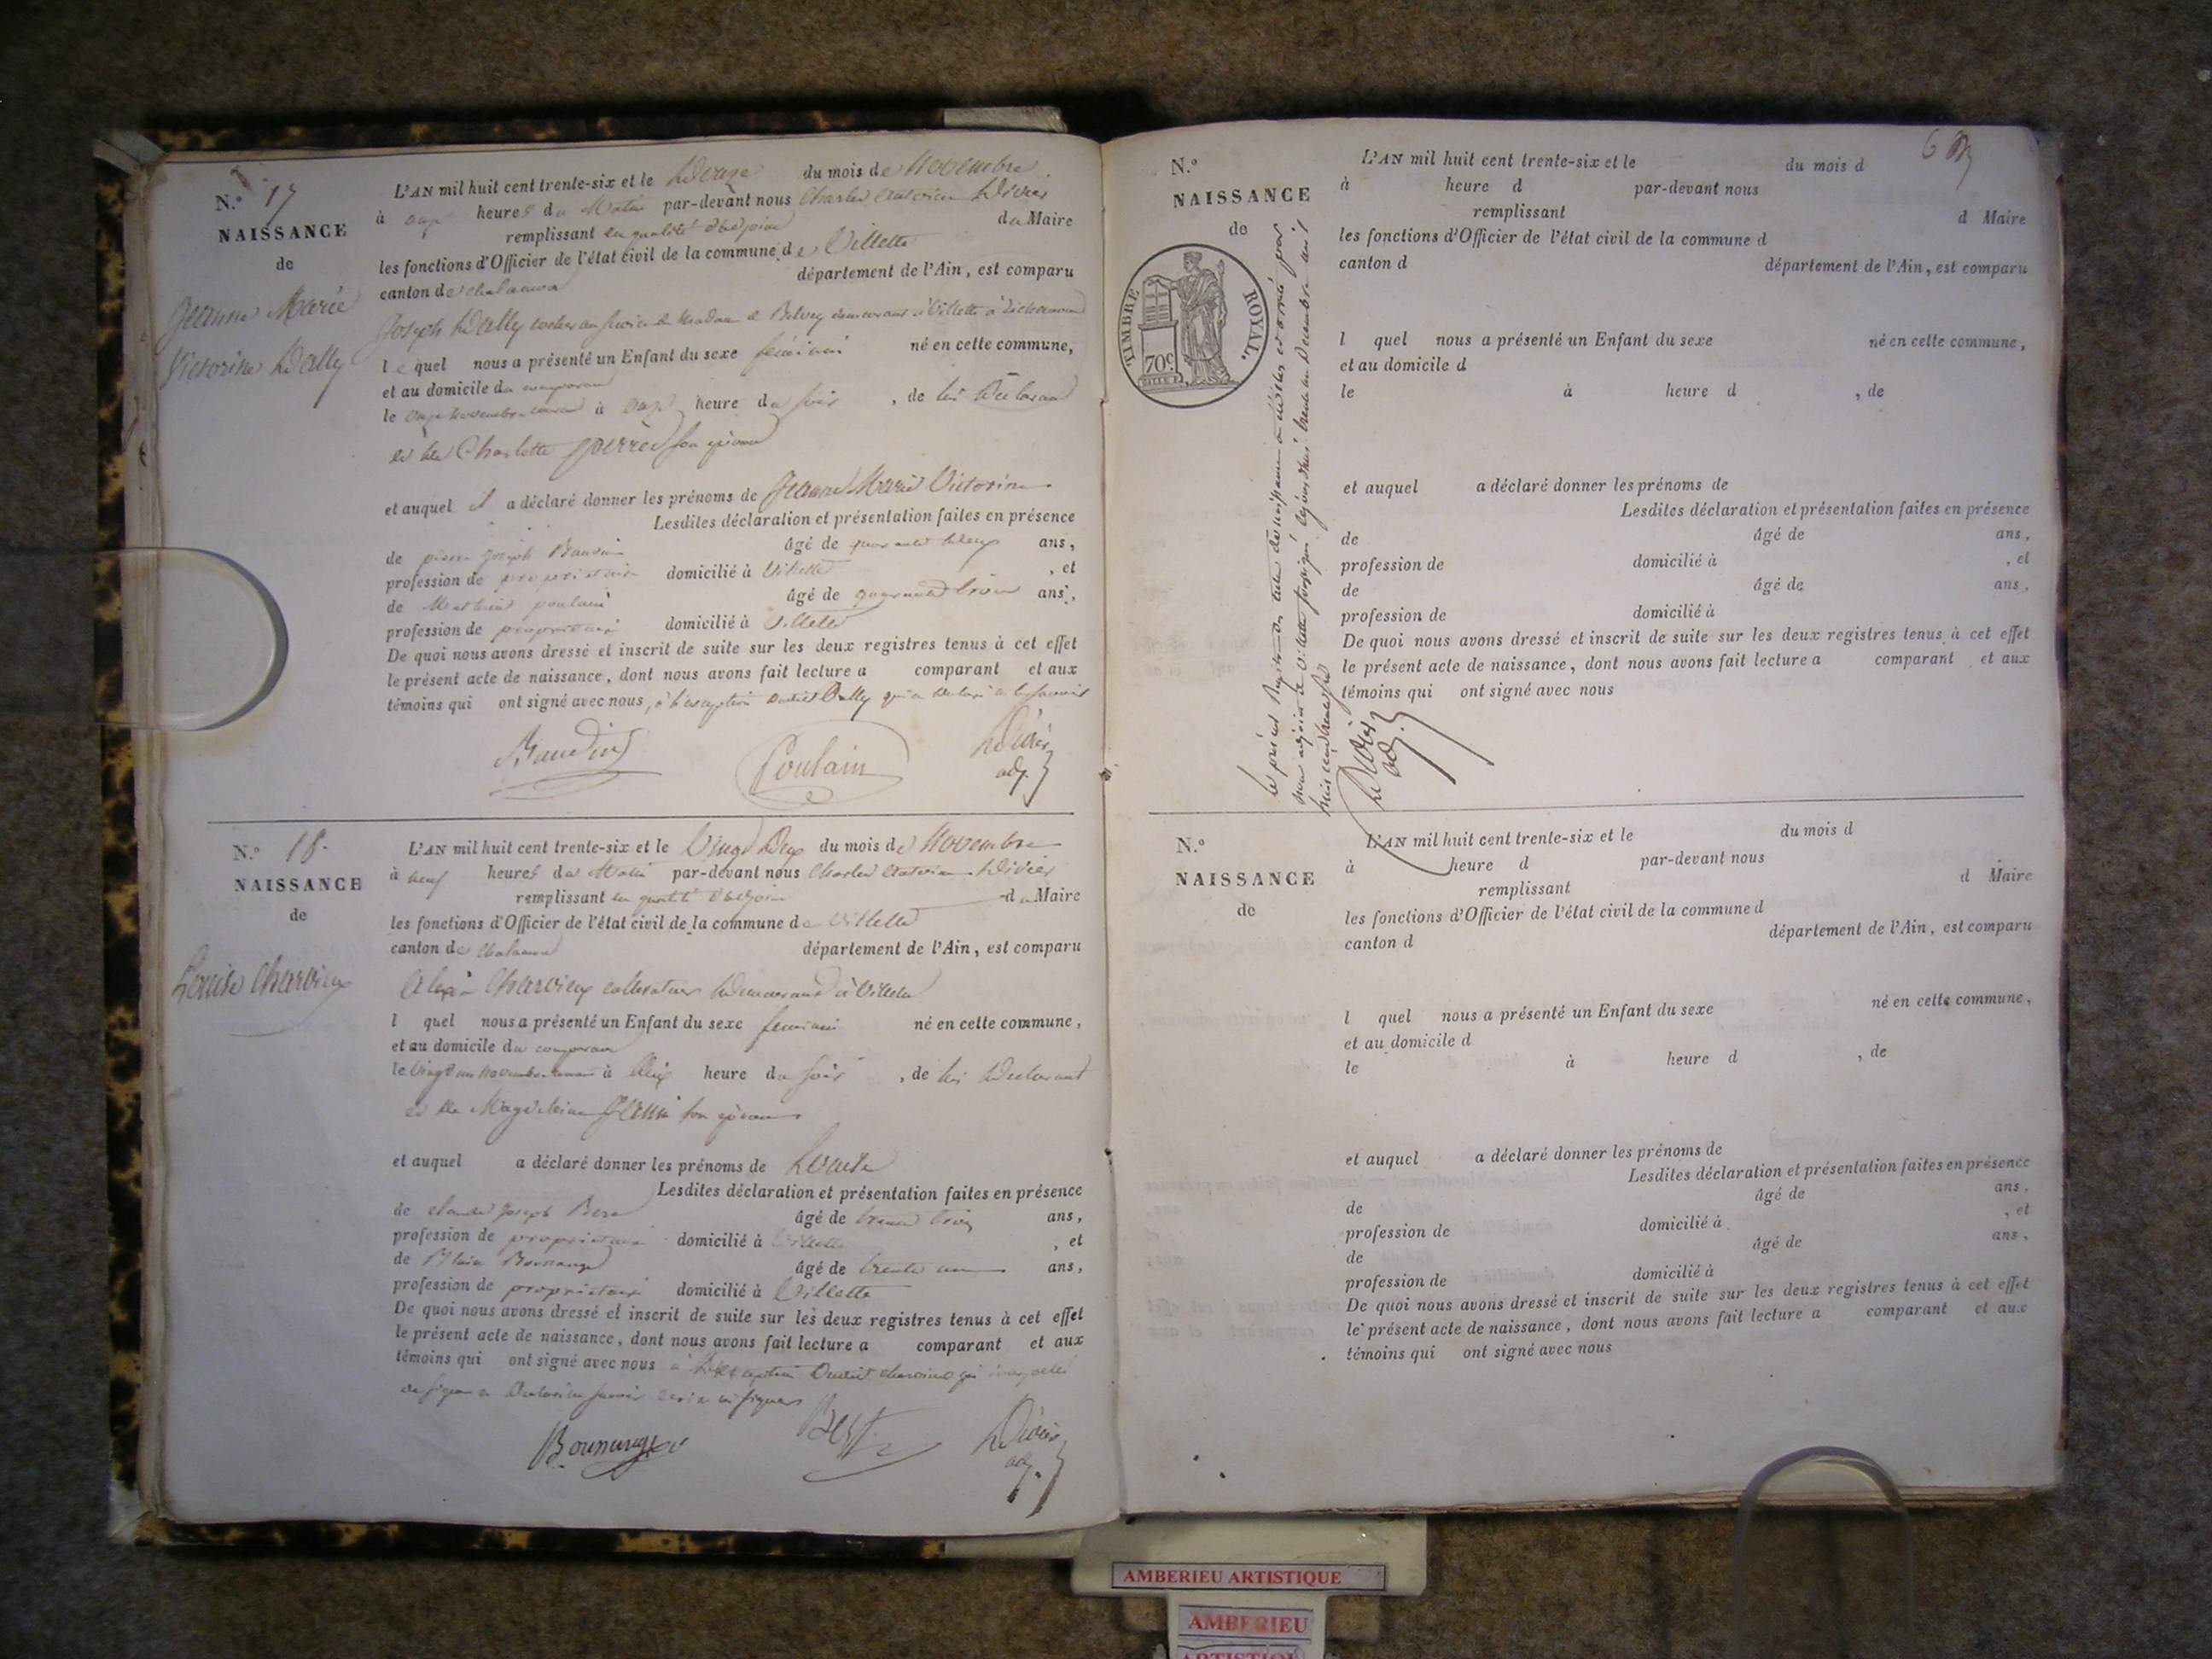 N.° 17
NAISSANCE
de
Jeanne Marie
Victorine Dally
L'AN mil huit cent trente-six et le Douze du mois de Novembre
à onze heures du Matin par-devant nous Charles Didier
remplissant en qualité d'adjoint du Maire
les fonctions d'Officier de l'état civil de la commune de Villette
canton de Chalamon département de l'Ain, est comparu
Joseph Dally cocher au service de Madame de Belvey demeurant à Villette à Richemont
lequel nous a présenté un Enfant du sexe féminin né en cette commune,
et au domicile du comparant
le onze novembre courant à onze heure du soir , de lui Déclarant
et de Charlotte perret son épouse
et auquel il a déclaré donner les prénoms de Jeanne Marie Victorine
Lesdites déclaration et présentation faites en présence
de pierre Joseph Baudin âgé de ans,
profession de propriétaire domicilié à Villette , et
de Mathieu poulain âgé de quarante trois ans,
profession de propriétaire domicilié à Villette
De quoi nous avons dressé et inscrit de suite sur les deux registres tenus à cet effet
le présent acte de naissance, dont nous avons fait lecture a comparant et aux
témoins qui ont signé avec nous, à l'exception dudit Dally qui a
Baudin Poulain Didier
adj.
N.° 18.
NAISSANCE
de
Louise Charvieux
L'AN mil huit cent trente-six et le Vingt Deux du mois de Novembre
à neuf heures du Matin par-devant nous Charles Didier
remplissant en qualité d'adjoint du Maire
les fonctions d'Officier de l'état civil de la commune de Villette
canton de Chalamon département de l'Ain, est comparu
Charvieux cultivateur demeurant à Villette
l quel nous a présenté un Enfant du sexe feminin né en cette commune,
et au domicile du comparant
le Vingt un Novembre courant à heure du soir , de lui Déclarant
et de Magdeleine son épouse
et auquel a déclaré donner les prénoms de Louise
Lesdites déclaration et présentation faites en présence
de claude Joseph âgé de trente trois ans,
profession de propriétaire domicilié à Villette , et
de âgé de trente un ans,
profession de propriétaire domicilié à Villette
De quoi nous avons dressé et inscrit de suite sur les deux registres tenus à cet effet
le présent acte de naissance, dont nous avons fait lecture a comparant et aux
témoins qui ont signé avec nous à l'exception dudit
de signer a Déclaré ne savoir écrire ni signer
Didier
adj.
6
N.°
NAISSANCE
de
TIMBRE ROYAL.
70c
L'AN mil huit cent trente-six et le du mois d
à heure d par-devant nous
remplissant d Maire
les fonctions d'Officier de l'état civil de la commune d
canton d département de l'Ain, est comparu
l quel nous a présenté un Enfant du sexe né en cette commune,
et au domicile d
le à heure d , de
et auquel a déclaré donner les prénoms de
Lesdites déclaration et présentation faites en présence
de âgé de ans,
profession de domicilié à , et
de âgé de ans,
profession de domicilié à
De quoi nous avons dressé et inscrit de suite sur les deux registres tenus à cet effet
le présent acte de naissance, dont nous avons fait lecture a comparant et aux
témoins qui ont signé avec nous
Le présent Registre des actes de naissance a été clos et arrêté par
nous adjoint de Villette trente un Decembre mil
huit cent trente six
Didier
adj.
N.°
NAISSANCE
de
L'AN mil huit cent trente-six et le du mois d
à heure d par-devant nous
remplissant d Maire
les fonctions d'Officier de l'état civil de la commune d
canton d département de l'Ain, est comparu
l quel nous a présenté un Enfant du sexe né en cette commune,
et au domicile d
le à heure d , de
et auquel a déclaré donner les prénoms de
Lesdites déclaration et présentation faites en présence
de âgé de ans,
profession de domicilié à , et
de âgé de ans,
profession de domicilié à
De quoi nous avons dressé et inscrit de suite sur les deux registres tenus à cet effet
le présent acte de naissance, dont nous avons fait lecture a comparant et aux
témoins qui ont signé avec nous
AMBERIEU ARTISTIQUE
AMBERIEU
ARTISTIQUE